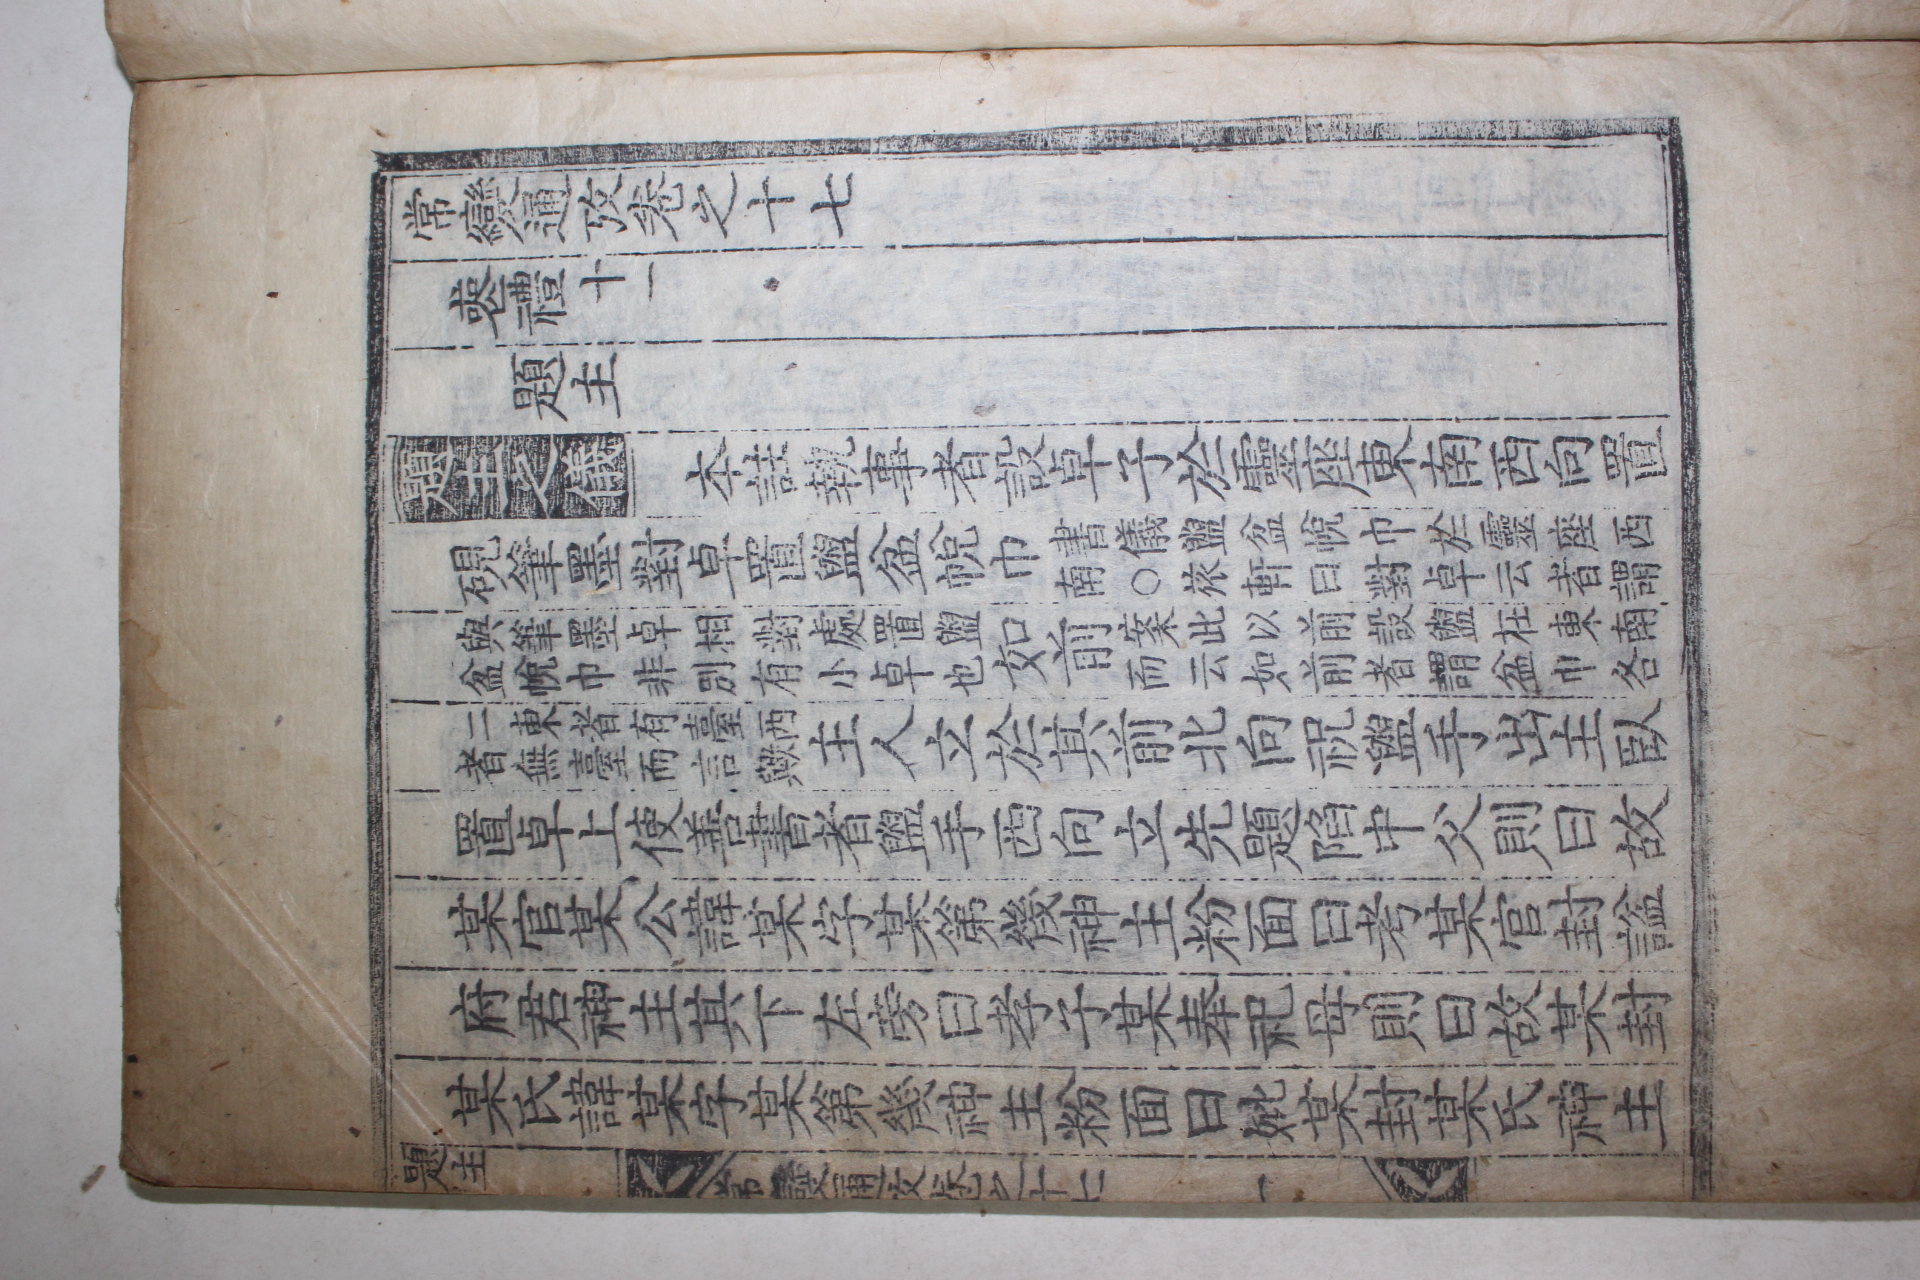 常變通攷卷之十七
䘮禮十一
題主
題主之儀 本註執事者設卓子於靈座東南西向置
硯筆墨對卓置盥盆帨巾書儀盥盆帨巾於靈座西南○旅軒曰對卓云者謂
與筆墨卓相對處置盥盆帨巾非別有小卓也如前案此以前設盥在東南而云如前者謂盆巾各
二東者有臺西者無臺而言歟主人立於其前北向祝盥手出主臥
置卓上使善書者盥手西向立先題陷中父則曰故
某官某公諱某字某第幾神主粉面曰考某官封諡
府君神主其下左旁曰孝子某奉祀母則曰故某封
某氏諱某字某第幾神主粉面曰妣某封某氏神主
題主 常變通攷卷之十七 一